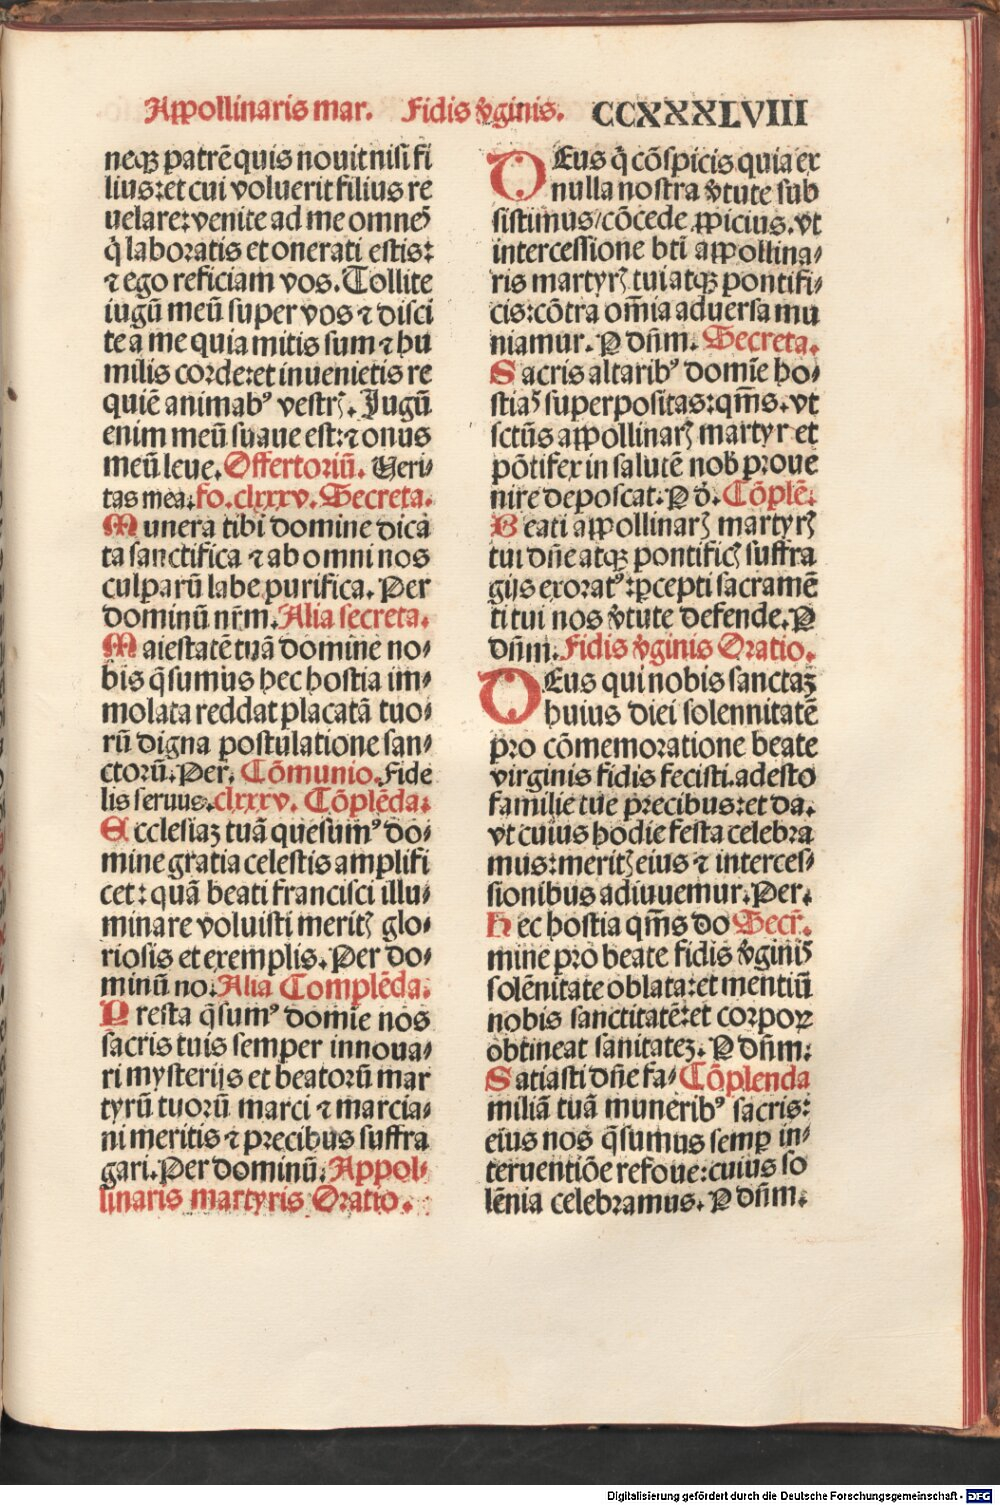 Appollinaris mar. Fidis v̾ginis. CCXXXLVIII
neqꝫ patrē quis nouit nisi fi
lius:et cui voluerit filius re
uelare:venite ad me omnes
q̇ laboratis et onerati estis:
⁊ ego reficiam vos. Tollite
iugū meū super vos ⁊ disci
te a me quia mitis sum ⁊ hu
milis corde:et inuenietis re
quiē animabꝰ vestrꝭ. Jugū
enim meū suaue est:⁊ onus
meū leue. Offertoriū. Veri⸗
tas mea. fo. clxxxv. Secreta.
Munera tibi domine dica
ta sanctifica ⁊ ab omni nos
culparū labe purifica. Per
dominū nr̄m. Alia secreta.
Maiestatē tuā domine no⸗
bis q̄sumus hec hostia im⸗
molata reddat placatā tuo⸗
rū digna postulatione san⸗
ctorū. Per. Cōmunio. Fide
lis seruus. clxxxv. Cōplēda.
Ecclesiaꝫ tuā quesumꝰ do⸗
mine gratia celestis amplifi
cet: quā beati francisci illu⸗
minare voluisti meritꝭ glo⸗
riosis et exemplis. Per do⸗
minū no. Alia Complēda.
Presta q̄sumꝰ domīe nos
sacris tuis semper innoua⸗
ri mysterijs et beatorū mar
tyrū tuorū marci ⁊ marcia⸗
ni meritis ⁊ precibus suffra
gari. Per dominū. Appol⸗
linaris martyris Oratio.
DEus q̇ cōspicis quia ex
nulla nostra v̾tute sub
sistimus/cōcede ꝓpicius. vt
intercessione bt̄i appollina⸗
ris martyrꝭ tui atqꝫ pontifi⸗
cis:cōtra om̄ia aduersa mu
niamur. P dn̄m. Secreta.
Sacris altaribꝰ domīe ho⸗
stias superpositas:qm̄s. vt
sctūs appollinarꝭ martyr et
pōtifex in salutē nob̄ proue
nire deposcat. P d. Cōplē.
Beati appollinarꝭ martyrꝭ
tui dn̄e atqꝫ pontificꝭ suffra
gijs exoratꝰ:ꝑcepti sacramē
ti tui nos v̾tute defende. P
dn̄m. Fidis v̾ginis Oratio.
DEus qui nobis sanctaꝫ
huius diei solennitatē
pro cōmemoratione beate
virginis fidis fecisti. adesto
familie tue precibus:et da.
vt cuius hodie festa celebra
mus:meritꝭ eius ⁊ interces⸗
sionibus adiuuemur. Per.
Hec hostia qm̄s do Secr̄.
mine pro beate fidis v̾ginis
solēnitate oblata:et mentiū
nobis sanctitatē:et corporꝝ
obtineat sanitateꝫ. P dn̄m:
Satiasti dn̄e fa⸗ Cōplenda
miliā tuā muneribꝰ sacris:
eius nos q̄sumus semꝑ in⸗
teruentiōe refoue:cuius so
lēnia celebramus. P dn̄m.
Digitalisierung gefördert durch die Deutsche Forschungsgemeinschaft - DFG